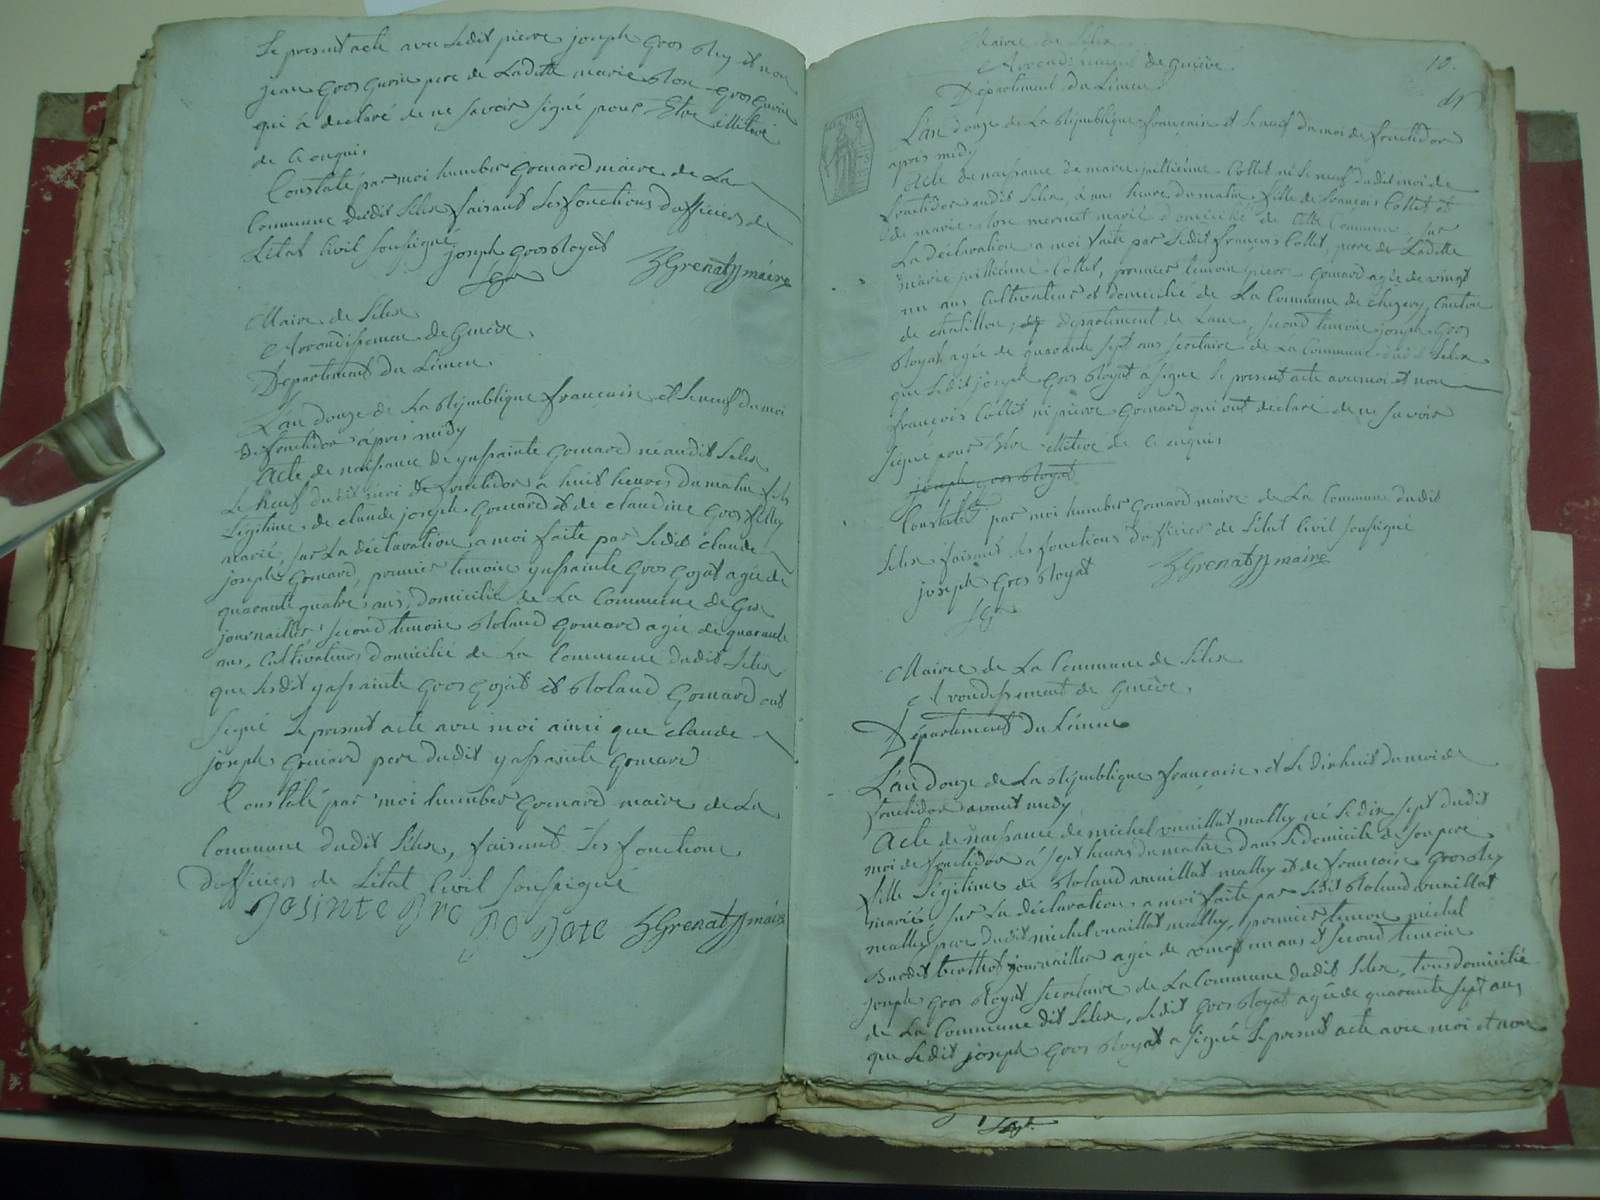 Le present acte avec Ledit pierre joseph gros et non
jean gros gurin pere de Laditte marie gros gurin
qui à déclaré de ne savoir signé pour Etre illitéré
de ce enquis
Constaté par moi humber gomard maire de La
Commune dudit Lelex faisant Les fonctions d'officier de
Létat Civil soussigné
joseph gros Royat HGrenat maire
Sgre
Maire de Lelex
Arrondissement de Genève
Departement du Léman
L'an douze de La République française et le neuf du moi
de fructidor après midy
Acte de naissance de yassainte gomard né audit Lelex
Le neuf dudit moi de fructidor à huit heures du matin fils
Légitime de claude joseph gomard et de claudine gros
marié, sur La déclaration a moi faite par Ledit claude
joseph gomard, premier temoin yassainte gros gojat agée de
quarante quatre ans, domicilié de La Commune de
journaillier, second temoin Roland gomard agée de quarante
ans, Cultivateur domicilié de La Commune dudit Lelex
que Lesdit yassainte gros gojat et Roland gomard ont
signé Le present acte avec moi ainsi que claude
joseph gomard pere dudit yassainte gomard
Constaté par moi humber gomard maire de La
Commune dudit Lelex, faisant Les fonctions
d'officier de Létat Civil soussigné
Jasinte gro go Jate HGrenat maire
Maire de Lelex
Arrondissement de Genève
Departement du Léman
10.
L'an douze de La République française et le neuf du moi de fructidor
après midy
Acte de naissance de marie jullienne Collet né le neuf dudit moi de
fructidor audit Lelex, à une heure du matin, fille de françois Collet et
de marie mermet marié domicilié de Commune, sur
La déclaration a moi faite par Ledit françois Collet, pere de Laditte
marie jullienne Collet, premier temoin pierre gomard agée de vingt
un ans Cultivateur et domicilié de La Commune de chezery, Canton
de chatillon, departement de Lain, second temoin joseph gros
Royat agée de quarante sept ans secretaire de La Commune dudit Lelex
que Ledit joseph gros Royat à signé Le present acte avec moi et non
françois Collet ni pierre gomard qui ont déclaré de ne savoir
signé pour Etre illitéré de ce enquis
joseph gros Royat
Constaté par moi humber gomard maire de La Commune dudit
Lelex faisant Les fonctions d'officier de Létat Civil soussigné
joseph gros Royat HGrenat maire
Sgre
Maire de La Commune de Lelex
Arrondissement de Genève
Departement du Léman
L'an douze de La République française et Le dixhuit du moi de
fructidor avant midy
Acte de naissance de michel vuaillat malley né Le dix sept dudit
moi de fructidor à sept heures du matin dans Le domicile de son pere
fille Légitime de Roland vuaillat malley et de françoise gros
marié sur La déclaration a moi faite par Ledit Roland vuaillat
malley pere dudit michel vuaillat malley, premier temoin michel
berthet journaillier agée de vingt un ans et second temoin
joseph gros Royat secretaire de La Commune dudit Lelex, tous domicilié
de La Commune dit Lelex, Ledit gros Royat agée de quarante sept ans
que Ledit joseph gros Royat a signé Le present acte avec moi et non